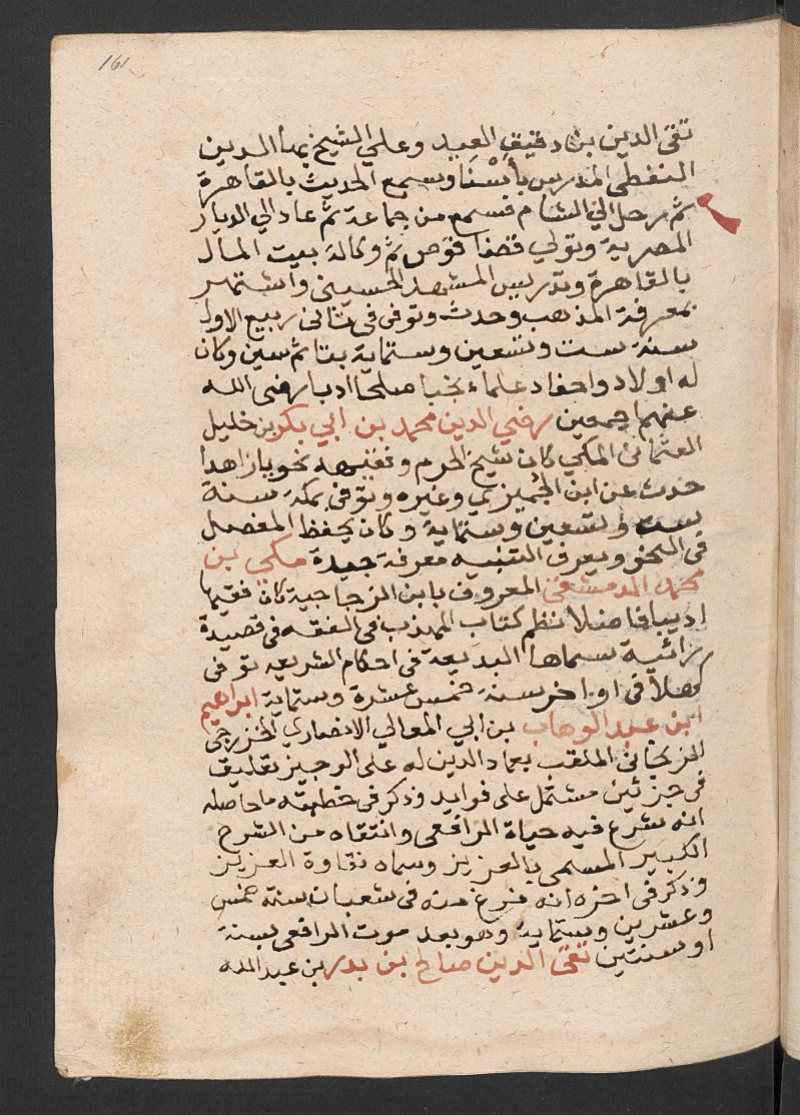 161
تقى الدين بن دقيق العيد وعلى الشيخ بهاء الدين
القفطى المدرس بأسْنَا وسمع الحديث بالقاهرة
ثم رحل الى الشام فسمع من جماعة ثم عاد الى الديار
المصرية وتولى قضا قوص ثم وكالة بيت المال
بالقاهرة وتدريس المشهد الحسينى واشتهر
بمعرفة المذهب وحدث وتوفى فى ثانى ربيع الاول
سنة ست وتسعين وستماية
له اولاد واحفاد علماء نجبا صلحا ادبا رضى الله
عنهم اجمعين رضي الدين محمد بن ابي بكر بن خليل
العثمانى المكي كان شيخ الحرم وفقيهه نحويا زاهدا
حدث عن ابن الجميزي وغيره وتوفى بمكة سنة
ست وتسعين وستماية وكان يحفظ المفصل
فى النحو ويعرف التنبيه معرفة جيدة مكي بن
محمد الدمشقى المعروف بابن الدجاجية كان فقيها
اديبا فاضلا نظم كتاب المهذب فى الفقه فى قصيدة
رائية سماها البديعة فى احكام الشريعه توفى
كهلا فى اواخر سنة خمس عشرة وستماية ابراهيم
ابن عبد الوهاب بن ابي المعالي الانصاري الخزرجى
الزنجانى الملقب بعماد الدين له على الوجيز تعليق
فى جزئين مشتمل على فوايد وذكر فى خطبته ما حاصله
انه شرع فيه حياة الرافعى وانتقاه من الشرح
الكبير المسمى بالعزيز وسماه نقاوة العزيز
وذكر فى اخره انه فرغ منه فى شعبان سنة خمس
وعشرين وستماية وهو بعد موت الرافعى بسنة
او سنتين تقى الدين صالح بن بدر بن عبد الله